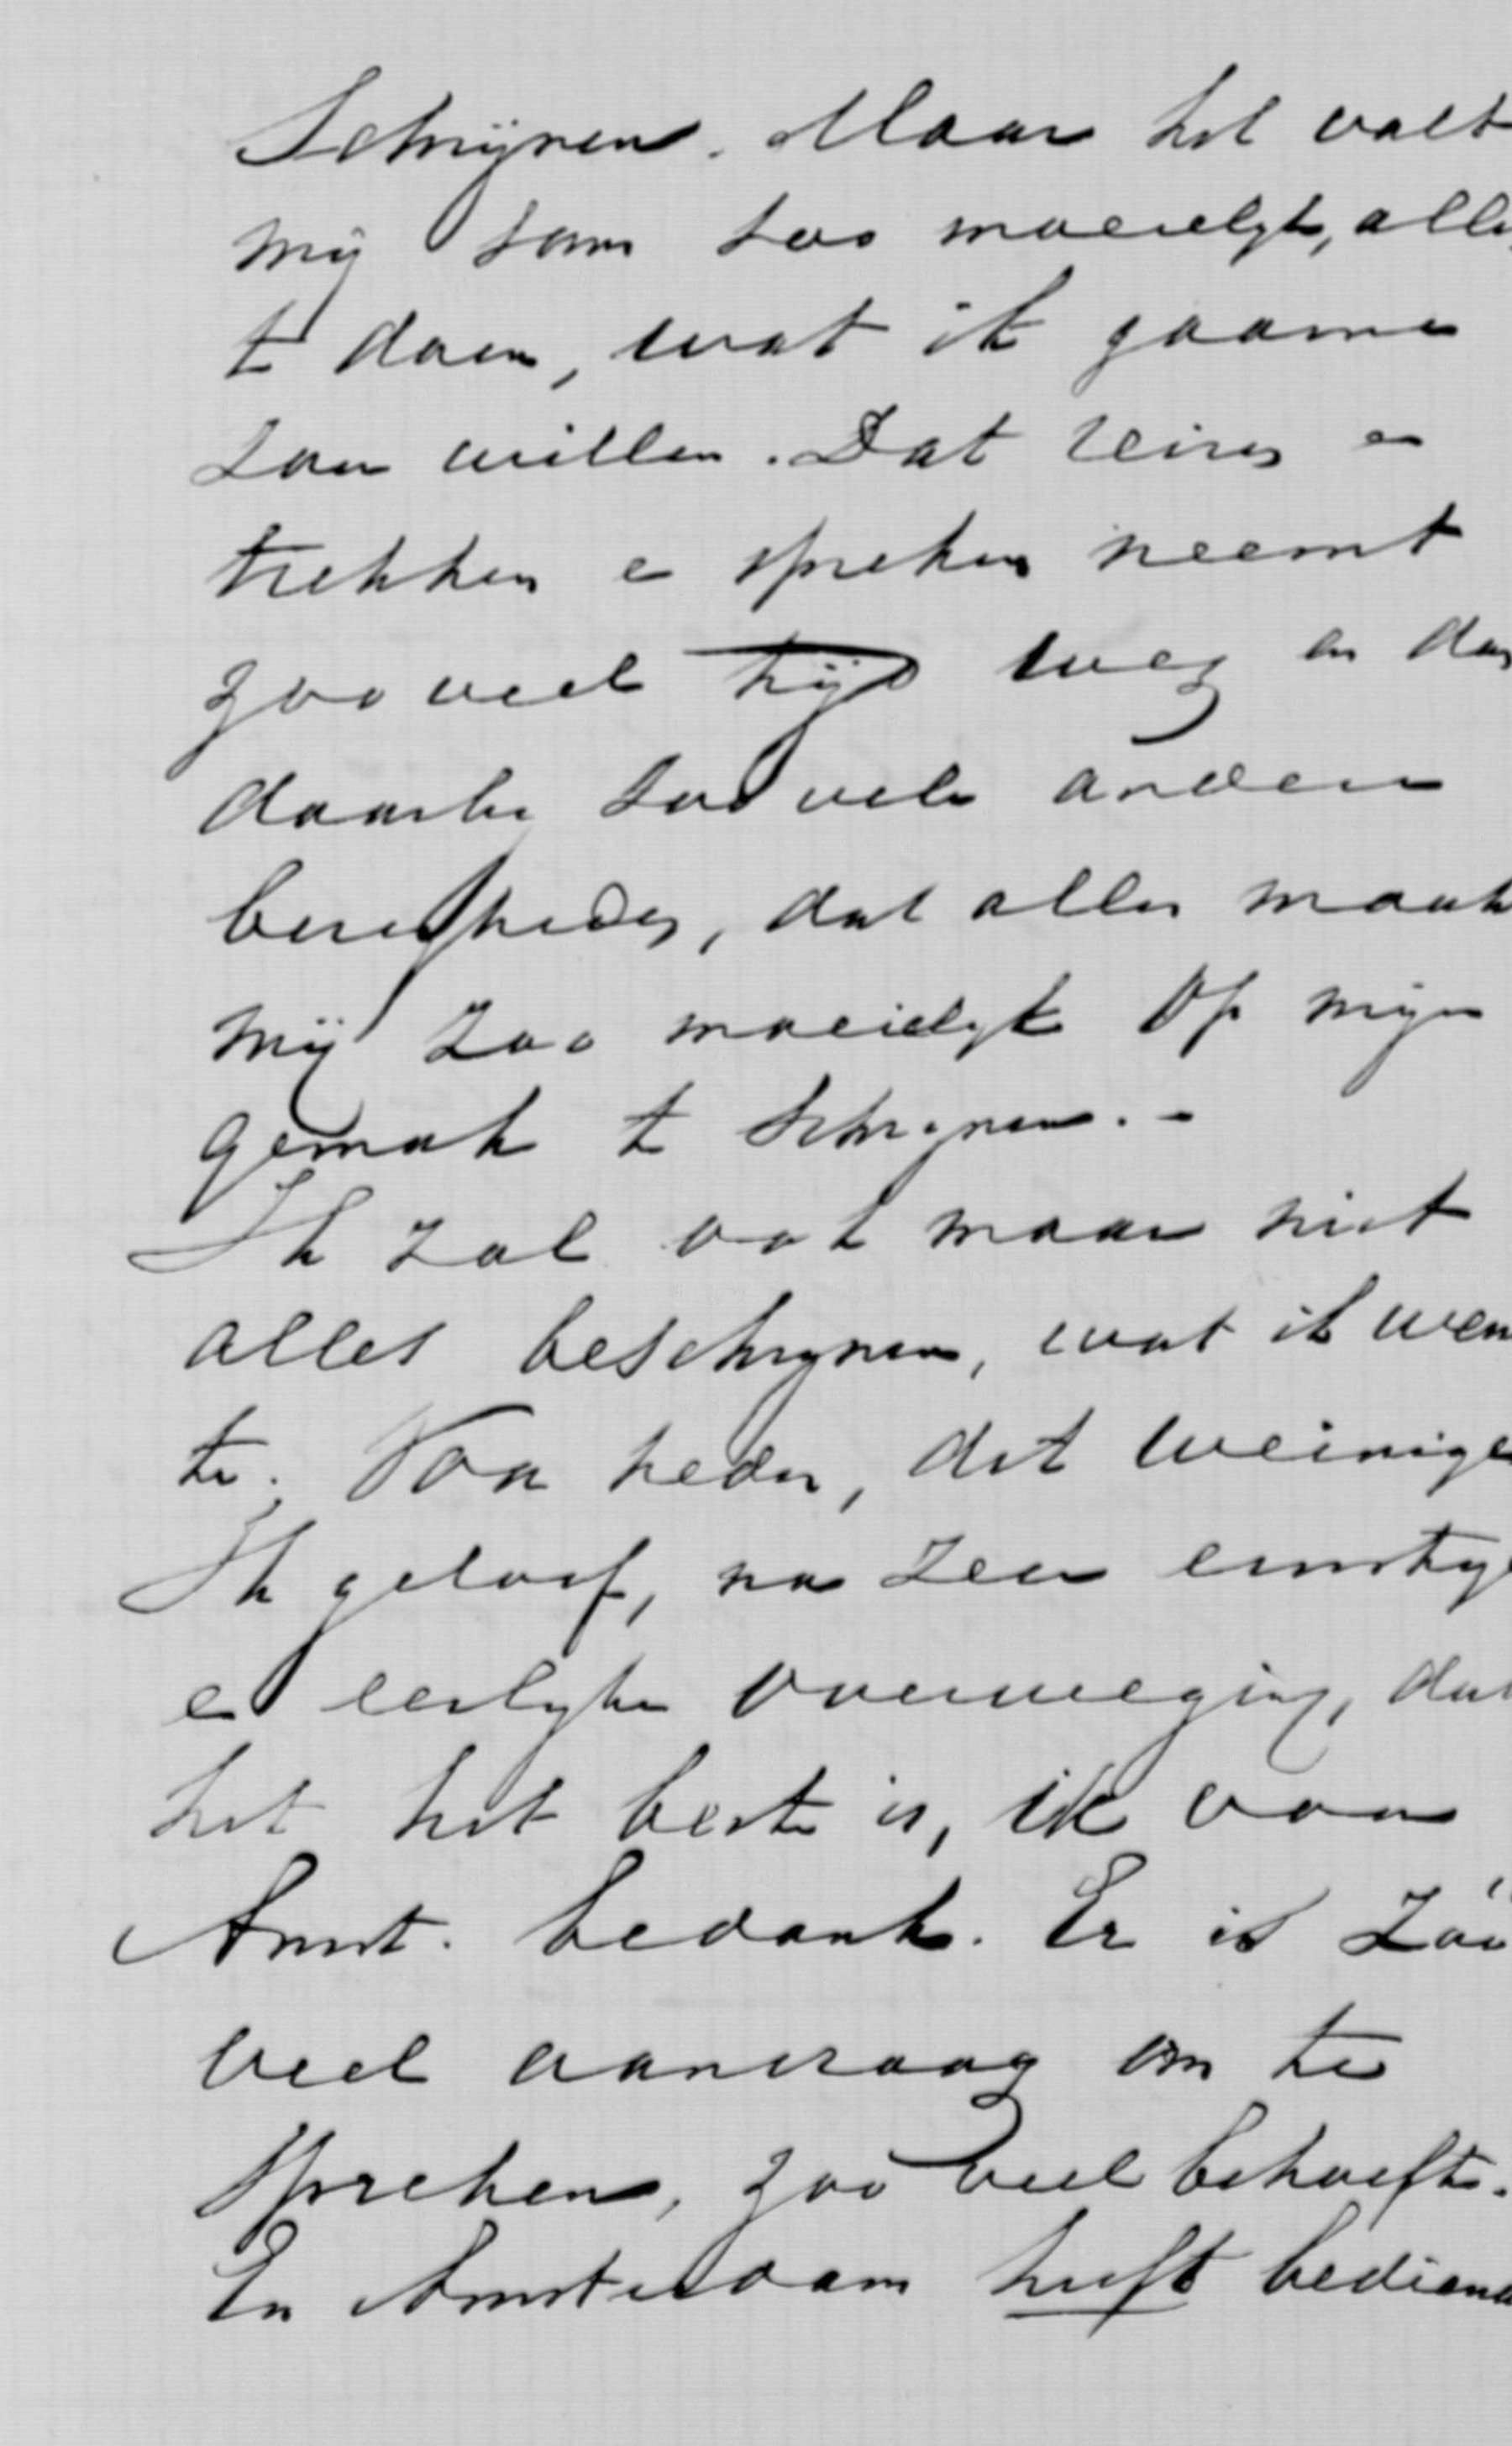 Schrijven. Maar het valt
mij soms zoo moeielijk, alle
te doen, wat ik gaarne
zou willen. Dat reizen en
trekken en spreken neemt
zoo veel tijd weg en dan
daarbij zoo vele andere
bezigheden, dat alles maak
mij zoo moeielijk op mijn
gemak te schrijven. -
Ik zal ook maar niet
alles beschrijven, wat ik wen
te. Voor heden, dit weinige
Ik geloof, na zeer ernstige
en eerlijke overweging, dat
het het beste is, ik voor
Amst. bedank. Er is zóó
veel aanvraag om te
spreken, zoo veel behoefte.
En Amsterdam heeft bediena